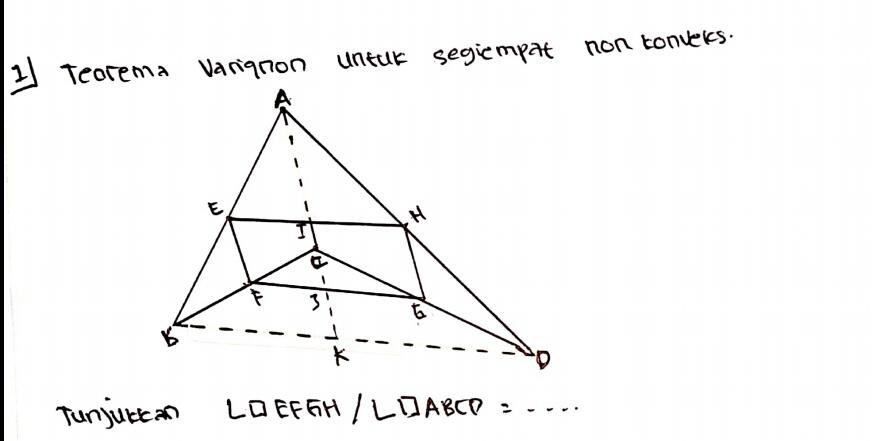 1] Teorema Varignon untuk segiempat non konveks.
A
E
H
I
C
F
J
G
B
K
D
Tunjukkan L□EFGH / L□ABCD = .....